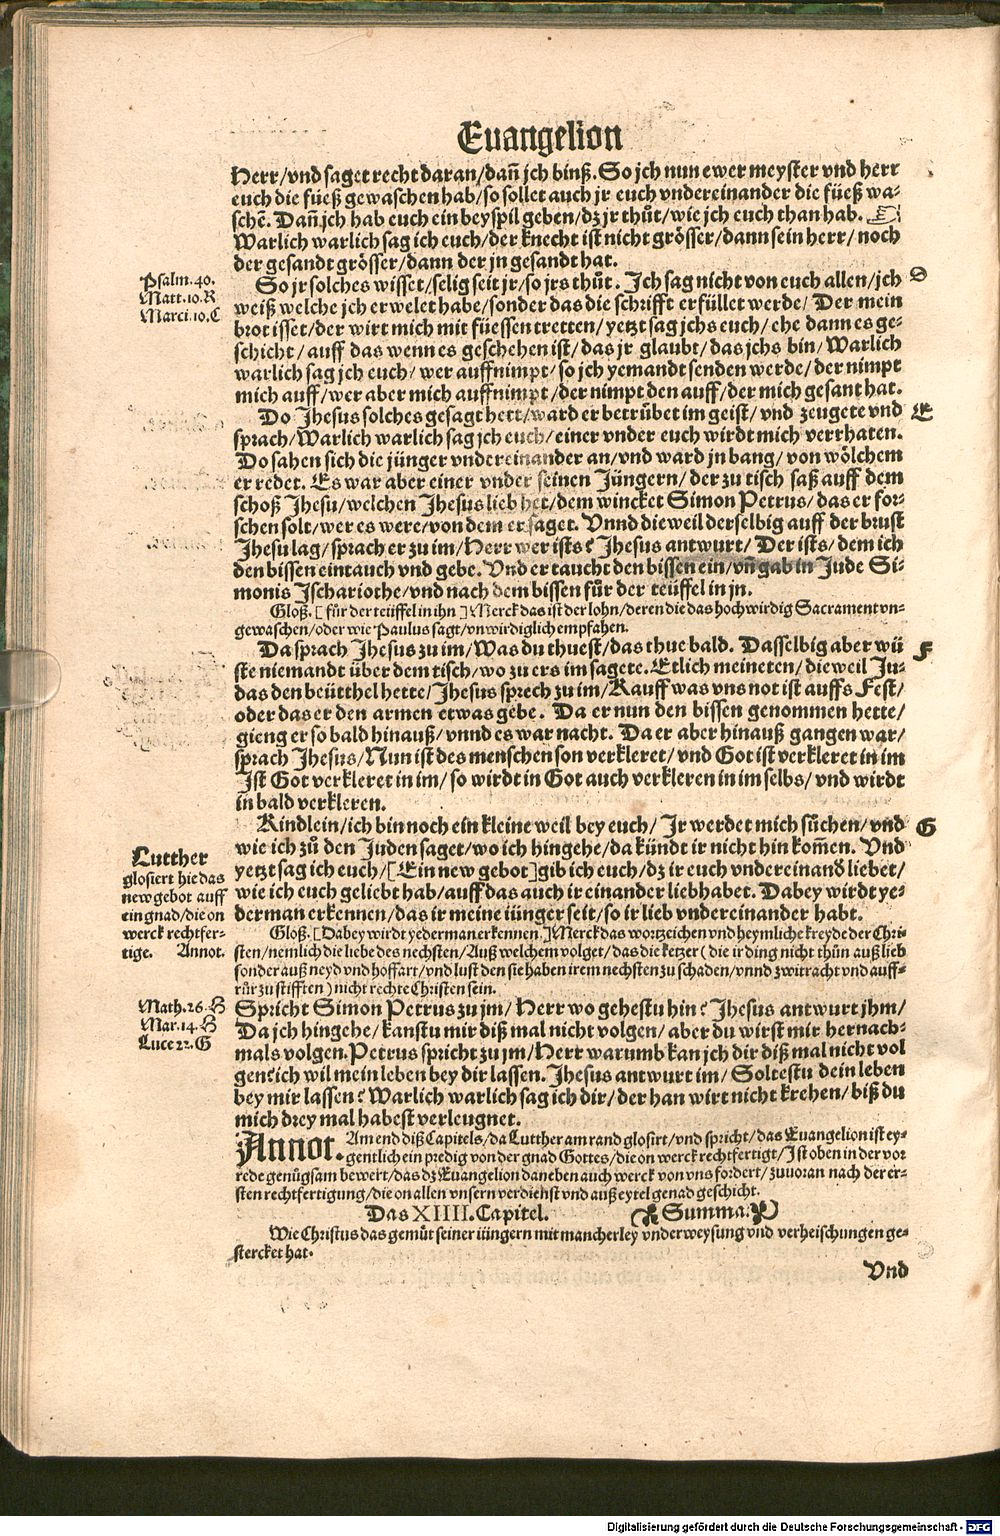 Euangelion
Herr/vnd saget recht daran/dañ jch binß. So jch nun ewer meyster vnd herr
euch die füeß gewaschen hab/so sollet auch jr euch vndereinander die füeß wa-
schẽ. Dañ jch hab euch ein beyspil geben/dz jr thůt/wie jch euch than hab.
Warlich warlich sag ich euch/der knecht ist nicht grösser/dann sein herr/ noch
der gesandt grösser/dann der jn gesandt hat.
Psalm.40.
Matt.10.R
Marci.10.C
So jr solches wisset/selig seit jr/so jrs thůt. Ich sag nicht von euch allen/jch D
weiß welche jch erwelet habe/sonder das die schrifft erfüllet werde/ Der mein
brot isset/der wirt mich mit füessen tretten/yetzt sag jchs euch/ehe dann es ge-
schicht/auff das wenn es geschehen ist/das jr glaubt/das jchs bin/Warlich
warlich sag jch euch/ wer auffnimpt/so jch yemandt senden werde/der nimpt
mich auff/wer aber mich auffnimpt/der nimpt den auff/der mich gesant hat.
Do Jhesus solches gesagt hett/ward er betrůbet im geist/vnd zeugete vnd E
sprach/Warlich warlich sag jch euch/einer vnder euch wirdt mich verrhaten.
Do sahen sich die jünger vndereinander an/vnd ward jn bang/von wölchem
er redet. Es war aber einer vnder seinen Jüngern/der zu tisch saß auff dem
schoß Jhesu/welchen Jhesus lieb het/dem wincket Simon Petrus/das er for-
schen solt/wer es were/von dem er saget. Vnnd dieweil derselbig auff der brust
Jhesu lag/sprach er zu im/Herr wer ists? Jhesus antwurt/Der ists/dem ich
den bissen eintauch vnd gebe. Vnd er taucht den bissen ein/vñ gab in Jude Si-
monis Ischariothe/vnd nach dem bissen für der teüffel in jn.
Gloß. [für der teüffel in ihn] Merck das ist der lohn/deren die das hochwirdig Sacrament vn-
gewaschen/oder wie Paulus sagt/vnwirdiglich empfahen.
Da sprach Jhesus zu im/Was du thuest/das thue bald. Dasselbig aber wü F
ste niemandt über dem tisch/wo zu ers im sagete. Etlich meineten/dieweil Ju-
das den beütthel hette/Jhesus sprech zu im/Kauff was vns not ist auffs Fest/
oder das er den armen etwas gebe. Da er nun den bissen genommen hette/
gieng er so bald hinauß/vnnd es war nacht. Da er aber hinauß gangen war/
sprach Jhesus/Nun ist des menschen son verkleret/vnd Got ist verkleret in im
Ist Got verkleret in im/so wirdt in Got auch verkleren in im selbs/vnd wirdt
in bald verkleren.
Kindlein/ich bin noch ein kleine weil bey euch/ Jr werdet mich sůchen/vnd G
wie ich zů den Juden saget/wo ich hingehe/da kündt ir nicht hin kom̃en. Vnd
yetzt sag ich euch/[Ein new gebot]gib ich euch/dz ir euch vndereinand liebet/
wie ich euch geliebt hab/auff das auch ir einander liebhabet. Dabey wirdt ye-
derman erkennen/das ir meine iünger seit/so ir lieb vndereinander habt.
Lutther
glosiert hie das
new gebot auff
ein gnad/die on
werck rechtfer-
tige. Annot.
Gloß. [Dabey wirdt yederman erkennen.] Merck das wortzeichen vnd heymliche kreyde der Chri-
sten/nemlich die liebe des nechsten/Auß welchem volget/das die ketzer(die ir ding nicht thün auß lieb
sonder auß neyd vnd hoffart/vnd lust den sie haben irem nechsten zu schaden/vnnd zwitracht vnd auff-
rür zu stifften) nicht rechte Christen sein.
Math.26.H
Mar.14.H
Luce 22.G
Spricht Simon Petrus zu jm/Herr wo gehestu hin? Jhesus antwurt jhm/
Da jch hingehe/kanstu mir diß mal nicht volgen/aber du wirst mir hernach-
mals volgen. Petrus spricht zu jm/Herr warumb kan jch dir diß mal nicht vol
gen?ich wil mein leben bey dir lassen. Jhesus antwurt im/Soltestu dein leben
bey mir lassen? Warlich warlich sag ich dir/der han wirt nicht krehen/biß du
mich drey mal habest verleugnet.
Annot. Am end diß Capitels/da Lutther am rand glosirt/vnd spricht/das Euangelion ist ey-
gentlich ein predig von der gnad Gottes/die on werck rechtfertigt/Ist oben in der vor
rede genůgsam bewert/das dz Euangelion daneben auch werck von vns fordert/zuuoran nach der er-
sten rechtfertigung/die on allen vnsern verdienst vnd auß eytel genad geschicht.
Das XIIII. Capitel. Summa.
Wie Christus das gemůt seiner iüngern mit mancherley vnderweysung vnd verheischungen ge-
stercket hat.
Vnd
Digitalisierung gefördert durch die Deutsche Forschungsgemeinschaft - DFG